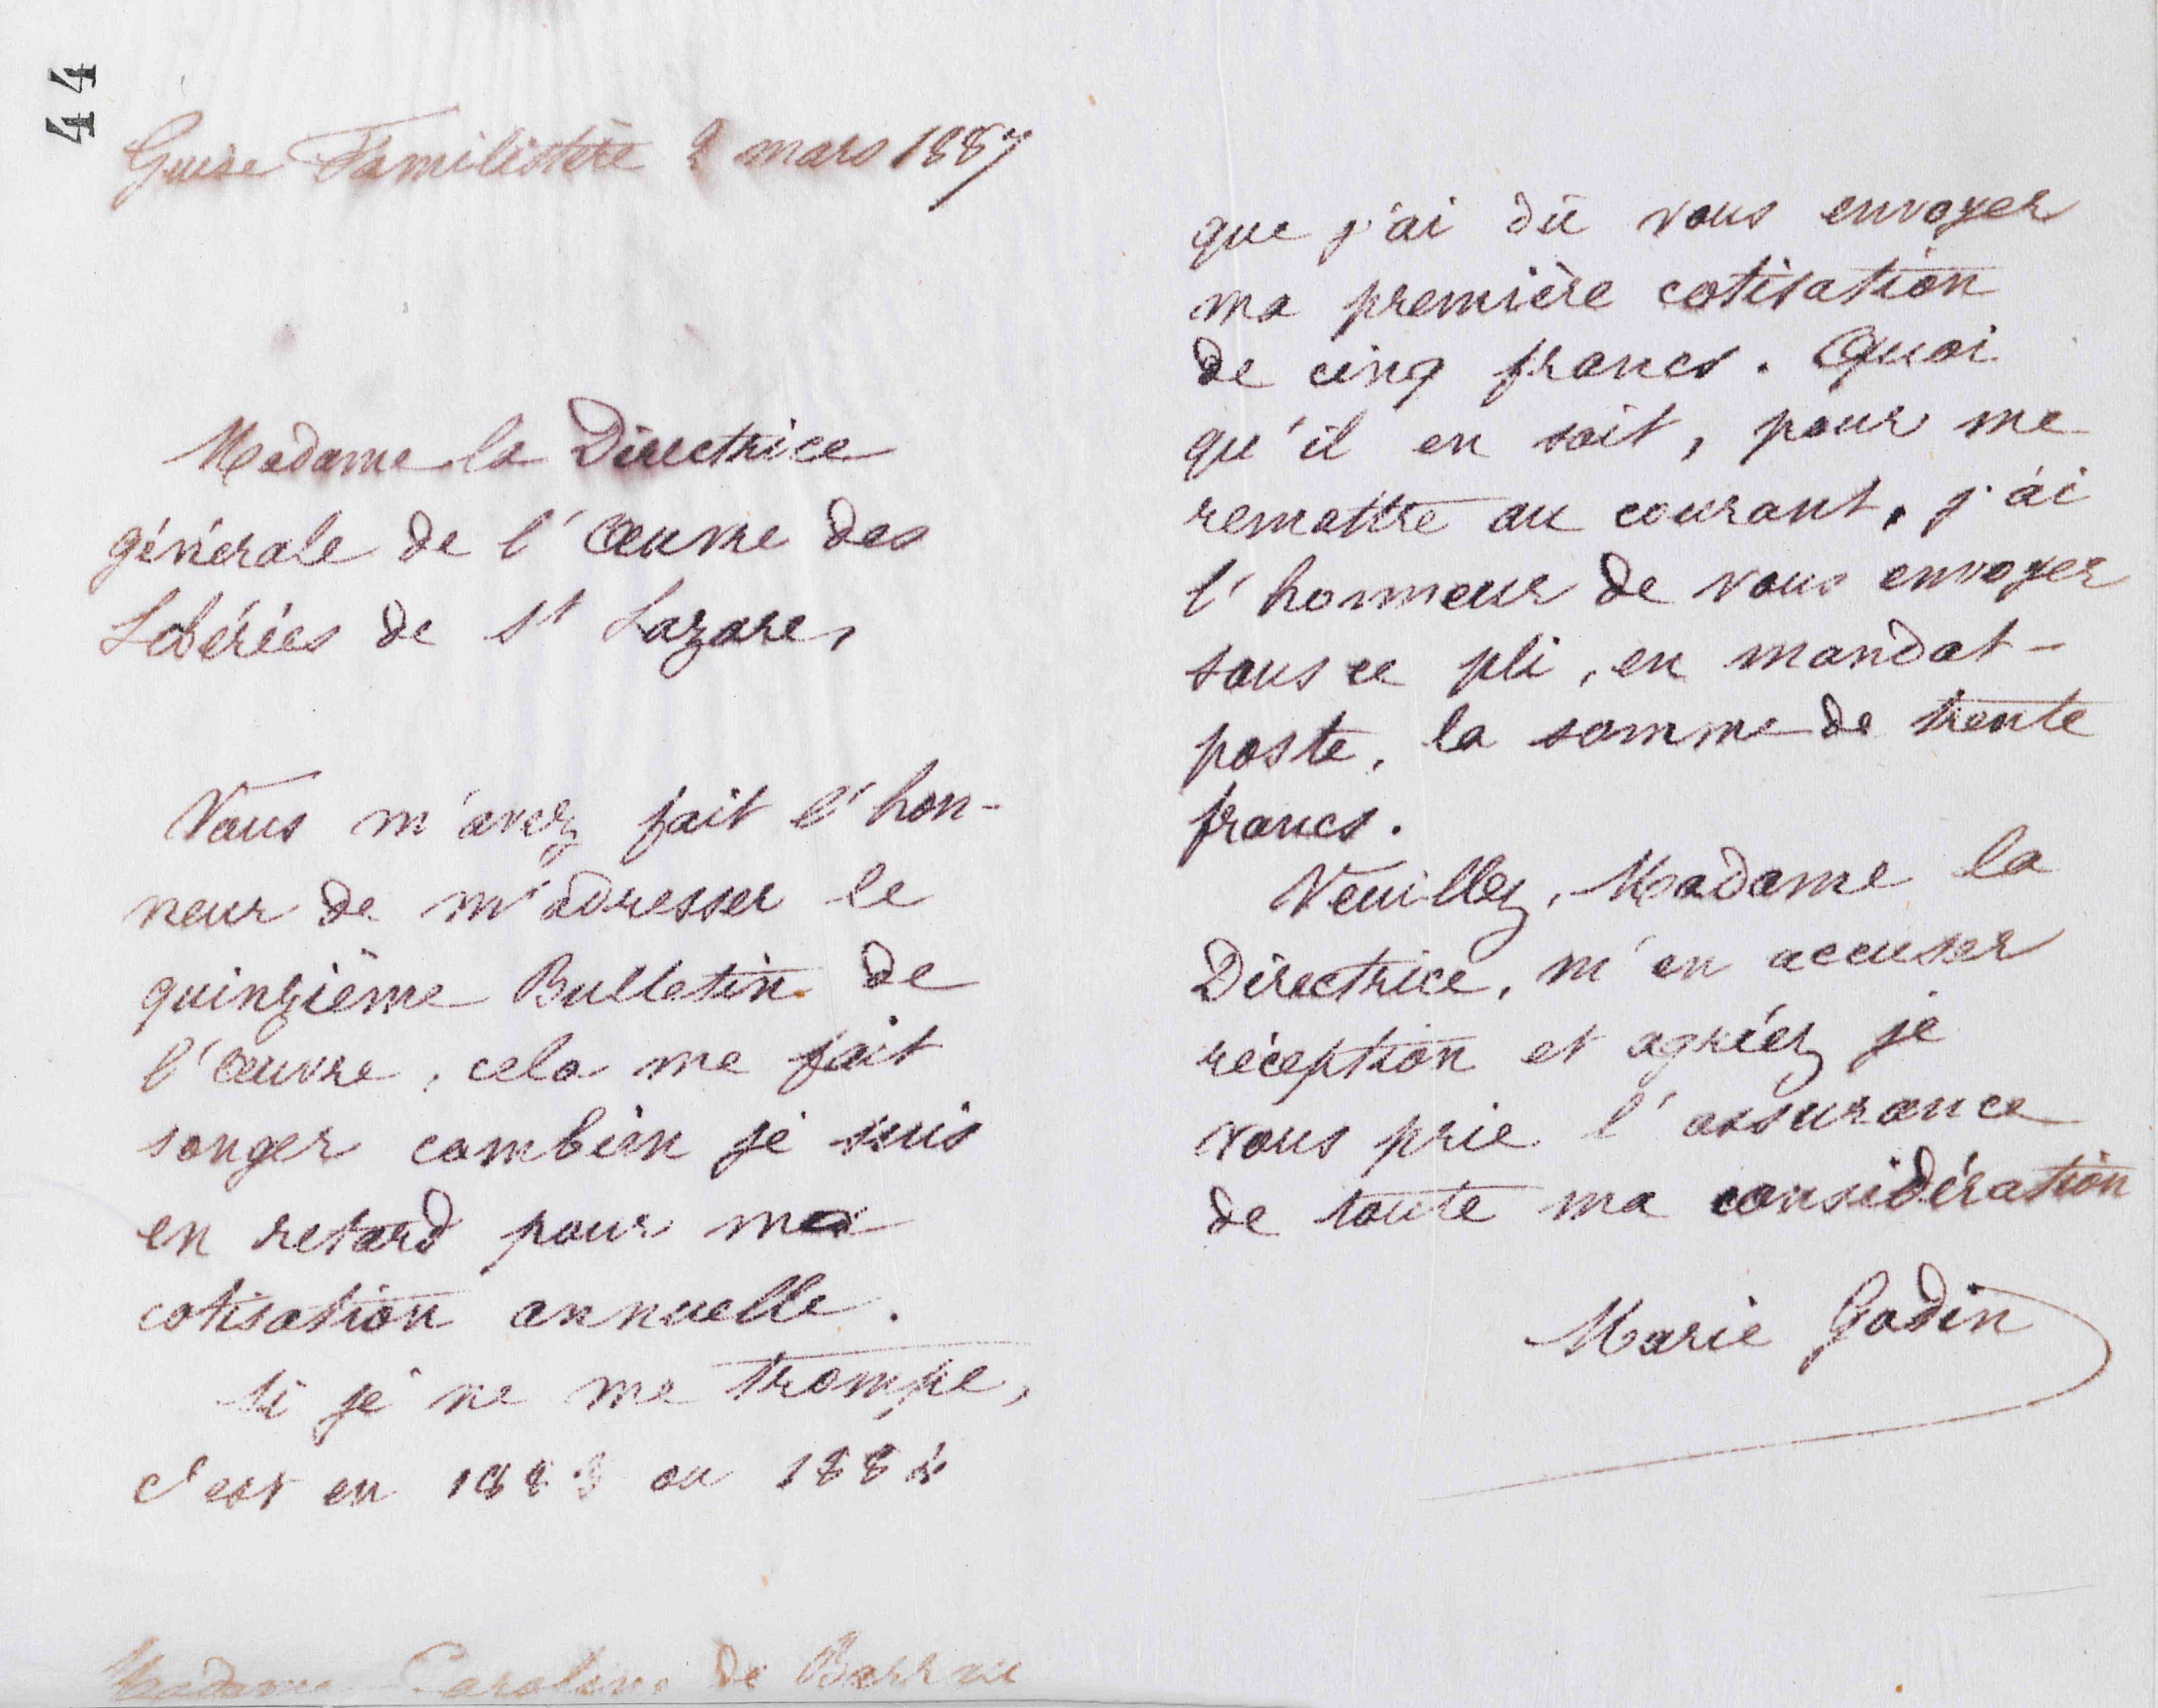 44
Guise Familistère 2 mars 1887
Madame la Directrice
générale de l'œuvre des
Libérées de St Lazare,
Vous m'avez fait l'hon-
neur de m'adresser le
quinzième Bulletin de
l'œuvre, cela me fait
songer combien je suis
en retard pour ma
cotisation annuelle.
Si je ne me trompe,
c'est en 1883 ou 1884
Madame Caroline de Barrau
que j'ai dû vous envoyer
ma première cotisation
de cinq francs. Quoi
qu'il en soit, pour me
remettre au courant, j'ai
l'honneur de vous envoyer
sous ce pli, en mandat-
poste, la somme de trente
francs.
Veuillez, Madame la
Directrice, m'en accuser
réception et agréez je
vous prie l'assurance
de toute ma considération
Marie Godin